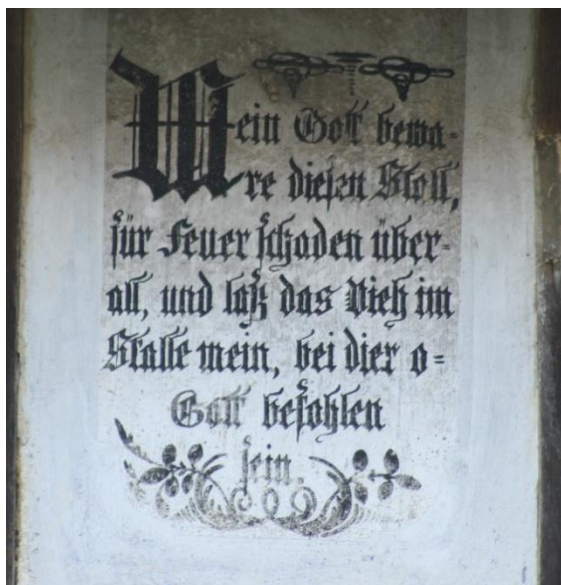 Mein Gott bewa=
re diesen Stall,
für Feuer schaden über=
all, und laß das Vieh im
Stalle mein, bei dier o=
Gott befohlen
sein.